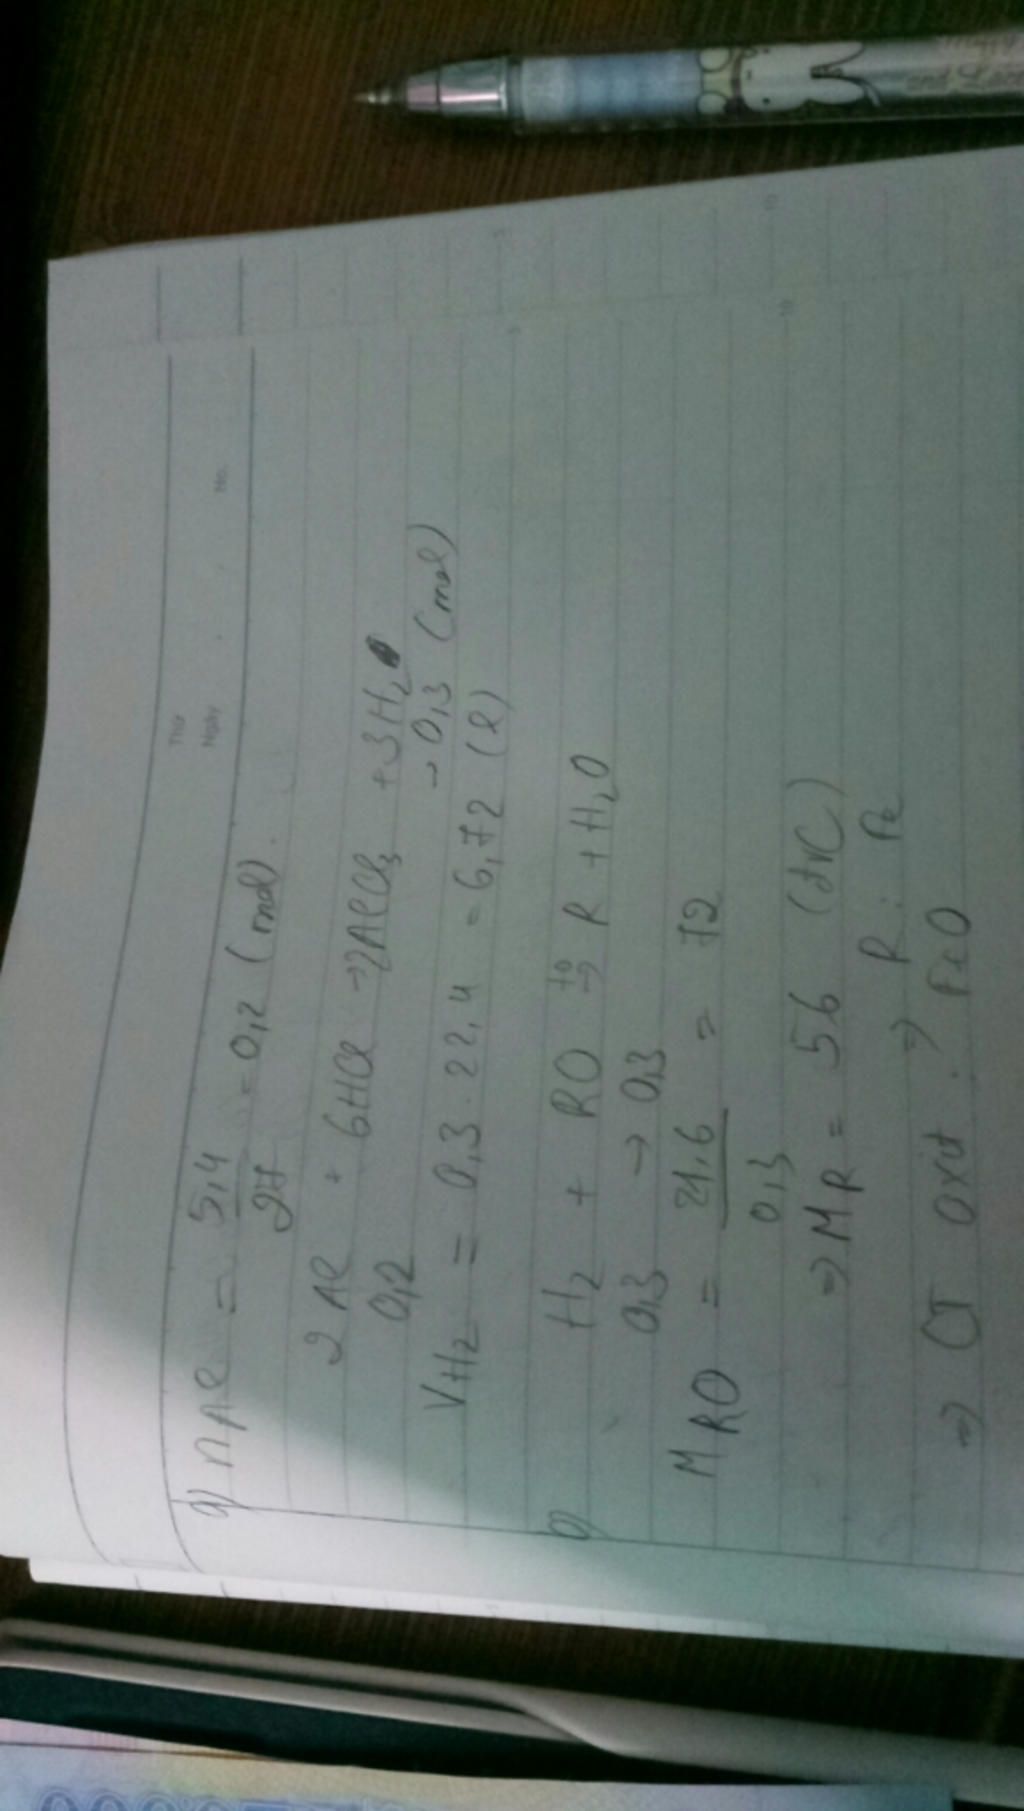 Thứ
Ngày
No.
a) nAl = 5,4/27 = 0,2 (mol).
2Al + 6HCl → 2AlCl3 + 3H2
0,2 → 0,3 (mol)
VH2 = 0,3 . 22,4 = 6,72 (l)
b) H2 + RO t°→ R + H2O
0,3 → 0,3
MRO = 21,6/0,3 = 72
⇒ MR = 56 (đvC)
⇒ R: Fe
⇒ CT oxit : FeO